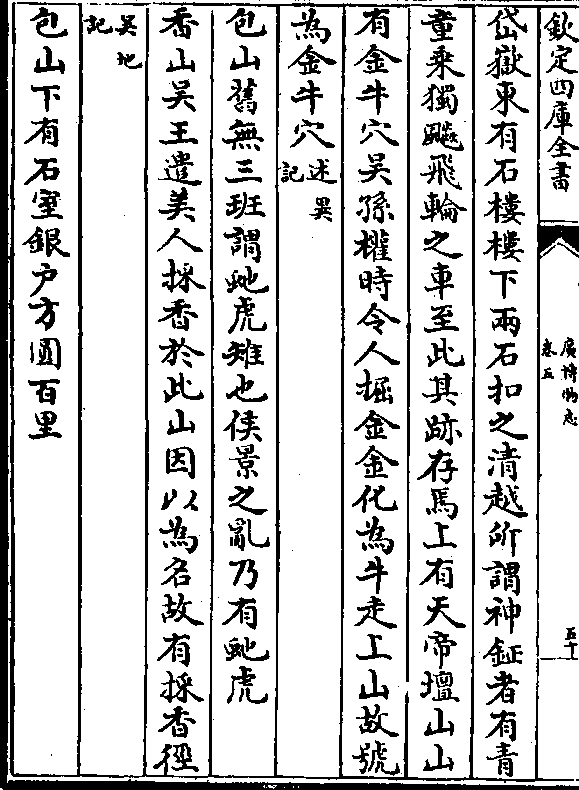 欽定四庫全書
廣博物志
卷五
五十
岱嶽東有石樓樓下兩石扣之清越所謂神鉦者有青
童乘獨飈飛輪之車至此其跡存焉上有天帝壇山山
有金牛穴吳孫權時令人掘金金化為牛走上山故號
為金牛穴述異
記
包山舊無三班謂虵虎雉也侯景之亂乃有虵虎
香山吳王遣美人採香於此山因以為名故有採香徑
吳地
記
包山下有石室銀户方圓百里